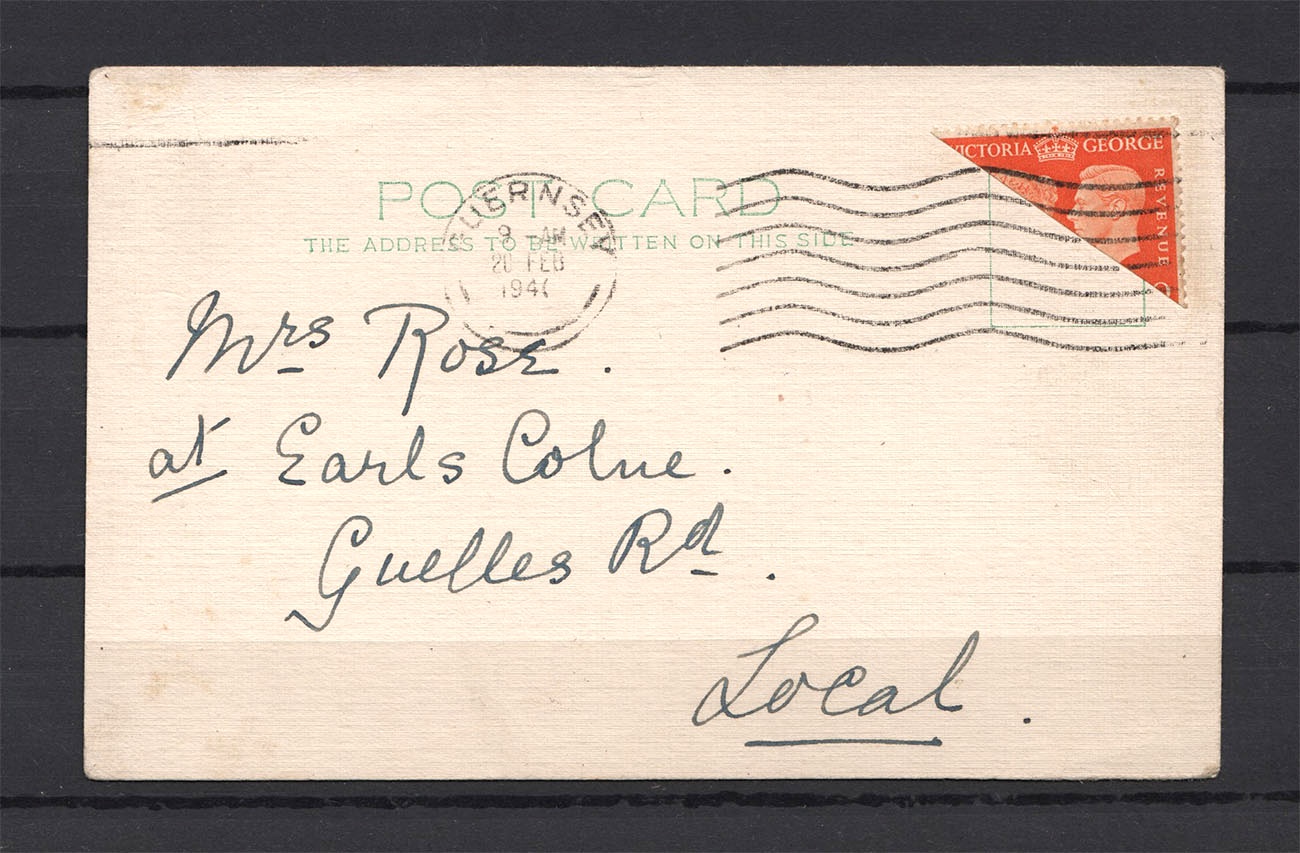 POST CARD
THE ADDRESS TO BE WRITTEN ON THIS SIDE
GUERNSEY
9 AM
20 FEB
VICTORIA GEORGE
REVENUE
Mrs Rose.
at Earls Colne.
Guelles Rd.
Local.